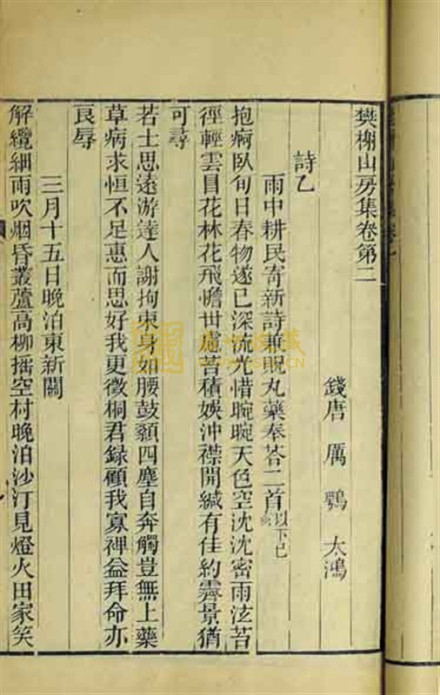 樊榭山房集卷第二
錢唐 厲鶚 太鴻
詩乙
雨中耕民寄新詩兼貺丸藥奉荅二首以下己亥
抱痾臥旬日春物遂已深流光惜晼晚天色空沈沈密雨泫苔
徑輕雲冒花林花飛憺世慮苔積娛沖襟開緘有佳約霽景猶
可尋
若士思遠游達人謝拘束身如腰鼓顙四塵自奔觸豈無上藥
草病求恒不足惠而思好我更徵桐君録顧我寡裨益拜命亦
良辱
三月十五日晚泊東新關
解纜細雨吹烟昏叢蘆高柳搖空村晚泊沙汀見燈火田家笑